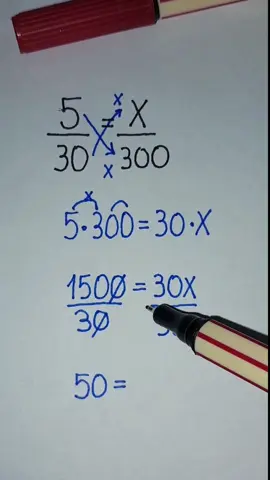 5/30 = X/300
x
x
x
5·300=30·X
1500/30 = 30X
50=